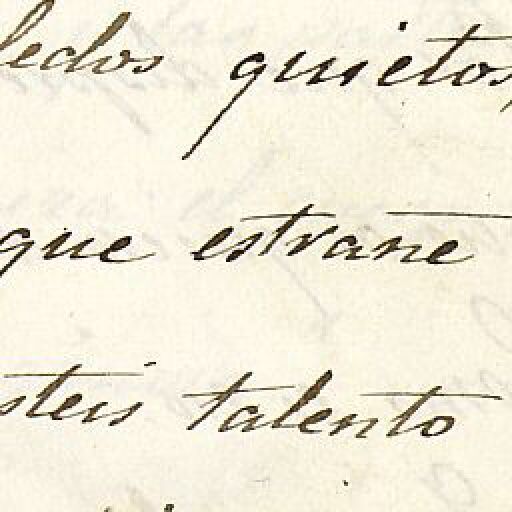 ledos quietos,
que estrañe
steis talento